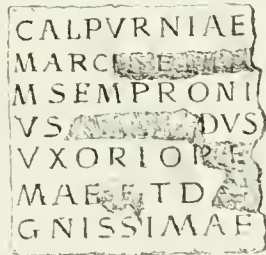 CALPVRNIAE
MARC
M SEMPRONI
VS DVS
VXORI OP
MAE ET D
GNISSIMAE